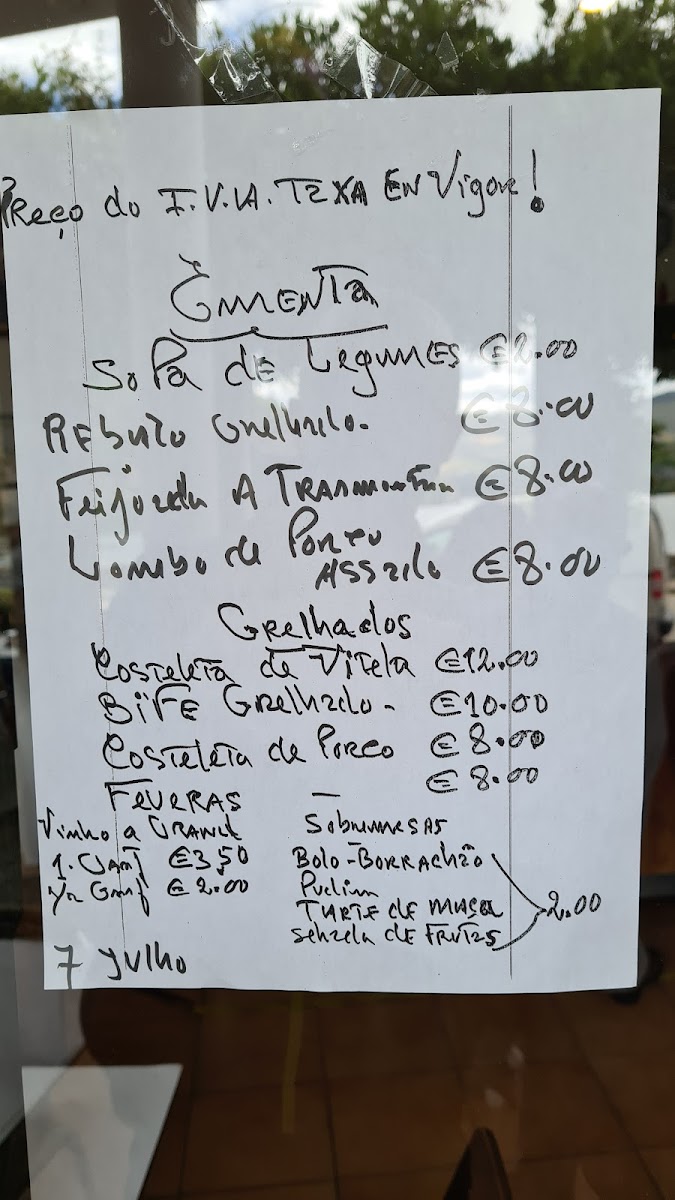 Preço do I.V.A. TEXA EN Vigor!
EmENTA
SoPa dE LegumES €2.00
REbuto Grelhado. €8.00
Feijoada A TRAsmontana €8.00
Lombo de Porco
ASSado €8.00
Grelhados
CosTeleTa de ViTela €12.00
BiFE Grelhado - €10.00
CosTeleTa de Porco €8.00
FEVERAS — €8.00
Vinho a GRANEL
1. GARf €3,50
1/2 GARf €2.00
SobremesAS
Bolo-BoRRAchão
Pudim
TARTE de maçã
SAlada dE FRuTas
2.00
7 Julho